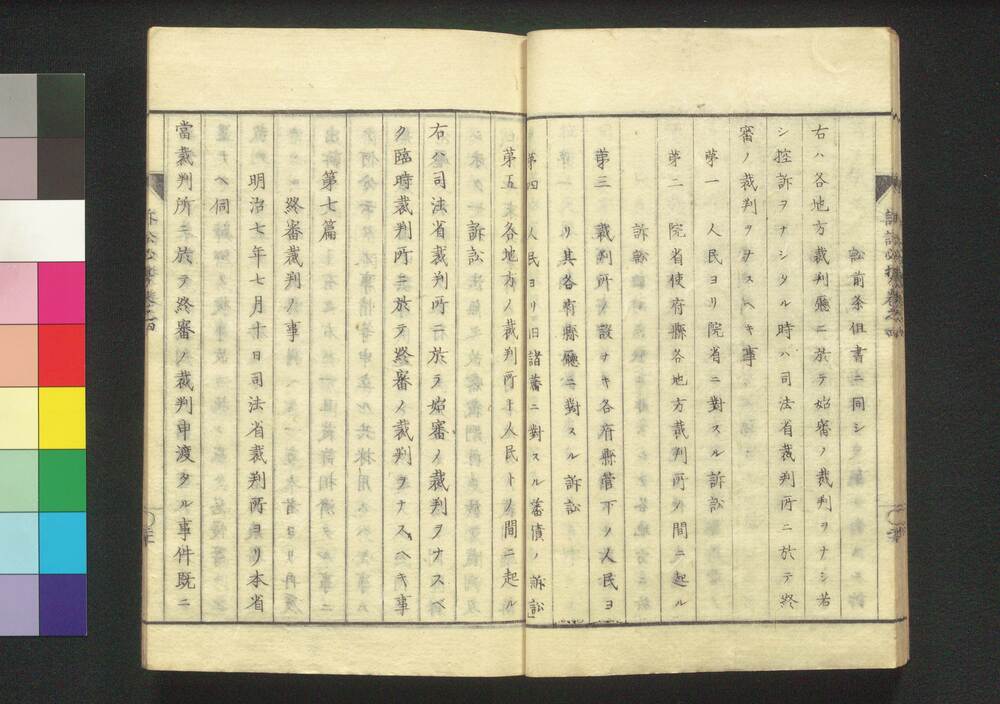 訟前条但書ニ同シ
右ハ各地方裁判廳ニ於テ始審ノ裁判ヲナシ若
シ控訴ヲナシタル時ハ司法省裁判所ニ於テ終
審ノ裁判ヲナスヘキ事
第一 人民ヨリ院省ニ對スル訴訟
第二 院省使府縣各地方裁判所ノ間ニ起ル
訴訟
第三 裁判所ノ設ナキ各府縣管下ノ人民ヨ
リ其各府縣廳ニ對スル訴訟
第四 人民ヨリ旧諸藩ニ對スル藩債ノ訴訟
第五 各地方ノ裁判所ト人民トノ間ニ起ル
訴訟
右ハ司法省裁判所ニ於テ始審ノ裁判ヲナスヘ
ク臨時裁判所ニ於テ終審ノ裁判ヲナスヘキ事
第七篇
終審裁判ノ事
明治七年七月十日司法省裁判所ヨリ本省
ヘ伺
當裁判所ニ於テ終審ノ裁判申渡タル事件既ニ